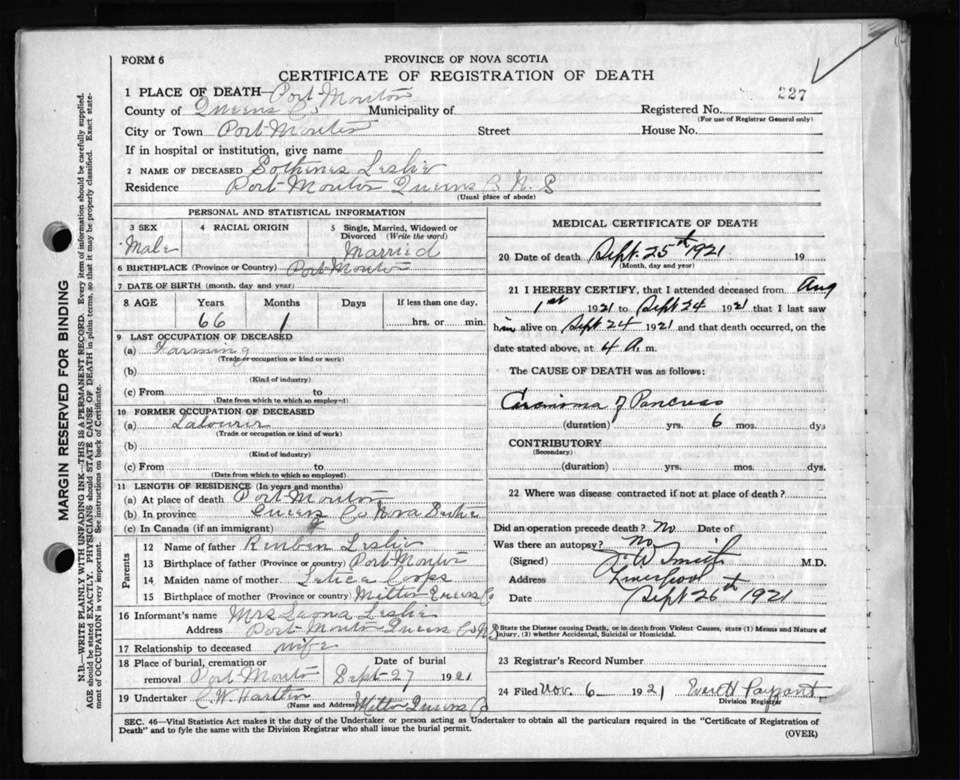 FORM 6
PROVINCE OF NOVA SCOTIA
CERTIFICATE OF REGISTRATION OF DEATH
227
1 PLACE OF DEATH—Port Mouton
County of Queens Co Municipality of
Registered No.
(For use of Registrar General only)
City or Town Port Mouton Street House No.
If in hospital or institution, give name
2 NAME OF DECEASED Leslie
Residence Port Mouton Queens Co N. S
(Usual place of abode)
PERSONAL AND STATISTICAL INFORMATION
3 SEX
Male
4 RACIAL ORIGIN
5 Single, Married, Widowed or
Divorced (Write the word)
Married
6 BIRTHPLACE (Province or Country) Port Mouton
7 DATE OF BIRTH (month, day and year)
8 AGE Years Months Days If less than one day,
66 1 hrs. or min.
9 LAST OCCUPATION OF DECEASED
(a) Farming
(Trade or occupation or kind or work)
(b)
(Kind of industry)
(c) From to
(Date from which to which so employed)
10 FORMER OCCUPATION OF DECEASED
(a) Labourer
(Trade or occupation or kind of work)
(b)
(Kind of industry)
(c) From to
(Date from which to which employed)
11 LENGTH OF RESIDENCE (In years and months)
(a) At place of death Port Mouton
(b) In province Queens Co Nova Scotia
(c) In Canada (if an immigrant)
Parents
12 Name of father Reuben Leslie
13 Birthplace of father (Province or country) Port Mouton
14 Maiden name of mother
15 Birthplace of mother (Province or country) Milton Queens Co
16 Informant's name Mrs Leona Leslie
Address Port Mouton Queens Co N.S
17 Relationship to deceased wife
18 Place of burial, cremation or
removal Port Mouton
Date of burial
Sept 27 1921
19 Undertaker C. W. Hartlen
(Name and Address) Milton Queens Co
MEDICAL CERTIFICATE OF DEATH
20 Date of death Sept. 25th 1921 19
(Month, day and year)
21 I HEREBY CERTIFY, that I attended deceased from Aug
1st 1921 to Sept 24 1921 that I last saw
him alive on Sept 24 1921 and that death occurred, on the
date stated above, at 4 A. m.
The CAUSE OF DEATH was as follows:
Carcinoma of Pancreas
(duration) yrs. 6 mos. dys
CONTRIBUTORY
(Secondary)
(duration) yrs. mos. dys.
22 Where was disease contracted if not at place of death?
Did an operation precede death? No Date of
Was there an autopsy? No
(Signed) J. W. Smith M.D.
Address Liverpool
Date Sept 26th 1921
State the Disease causing Death, or in death from Violent Causes, state (1) Means and Nature of
Injury, (2) whether Accidental, Suicidal or Homicidal.
23 Registrar's Record Number
24 Filed Nov. 6 1921 Everett Payzant
Division Registrar
SEC. 46—Vital Statistics Act makes it the duty of the Undertaker or person acting as Undertaker to obtain all the particulars required in the "Certificate of Registration of
Death" and to fyle the same with the Division Registrar who shall issue the burial permit.
(OVER)
MARGIN RESERVED FOR BINDING
N.B.—WRITE PLAINLY WITH UNFADING INK—THIS IS A PERMANENT RECORD. Every item of information should be carefully supplied.
AGE should be stated EXACTLY. PHYSICIANS should STATE CAUSE OF DEATH in plain terms, so that it may be properly classified. Exact state-
ment of OCCUPATION is very important. See instructions on back of Certificate.